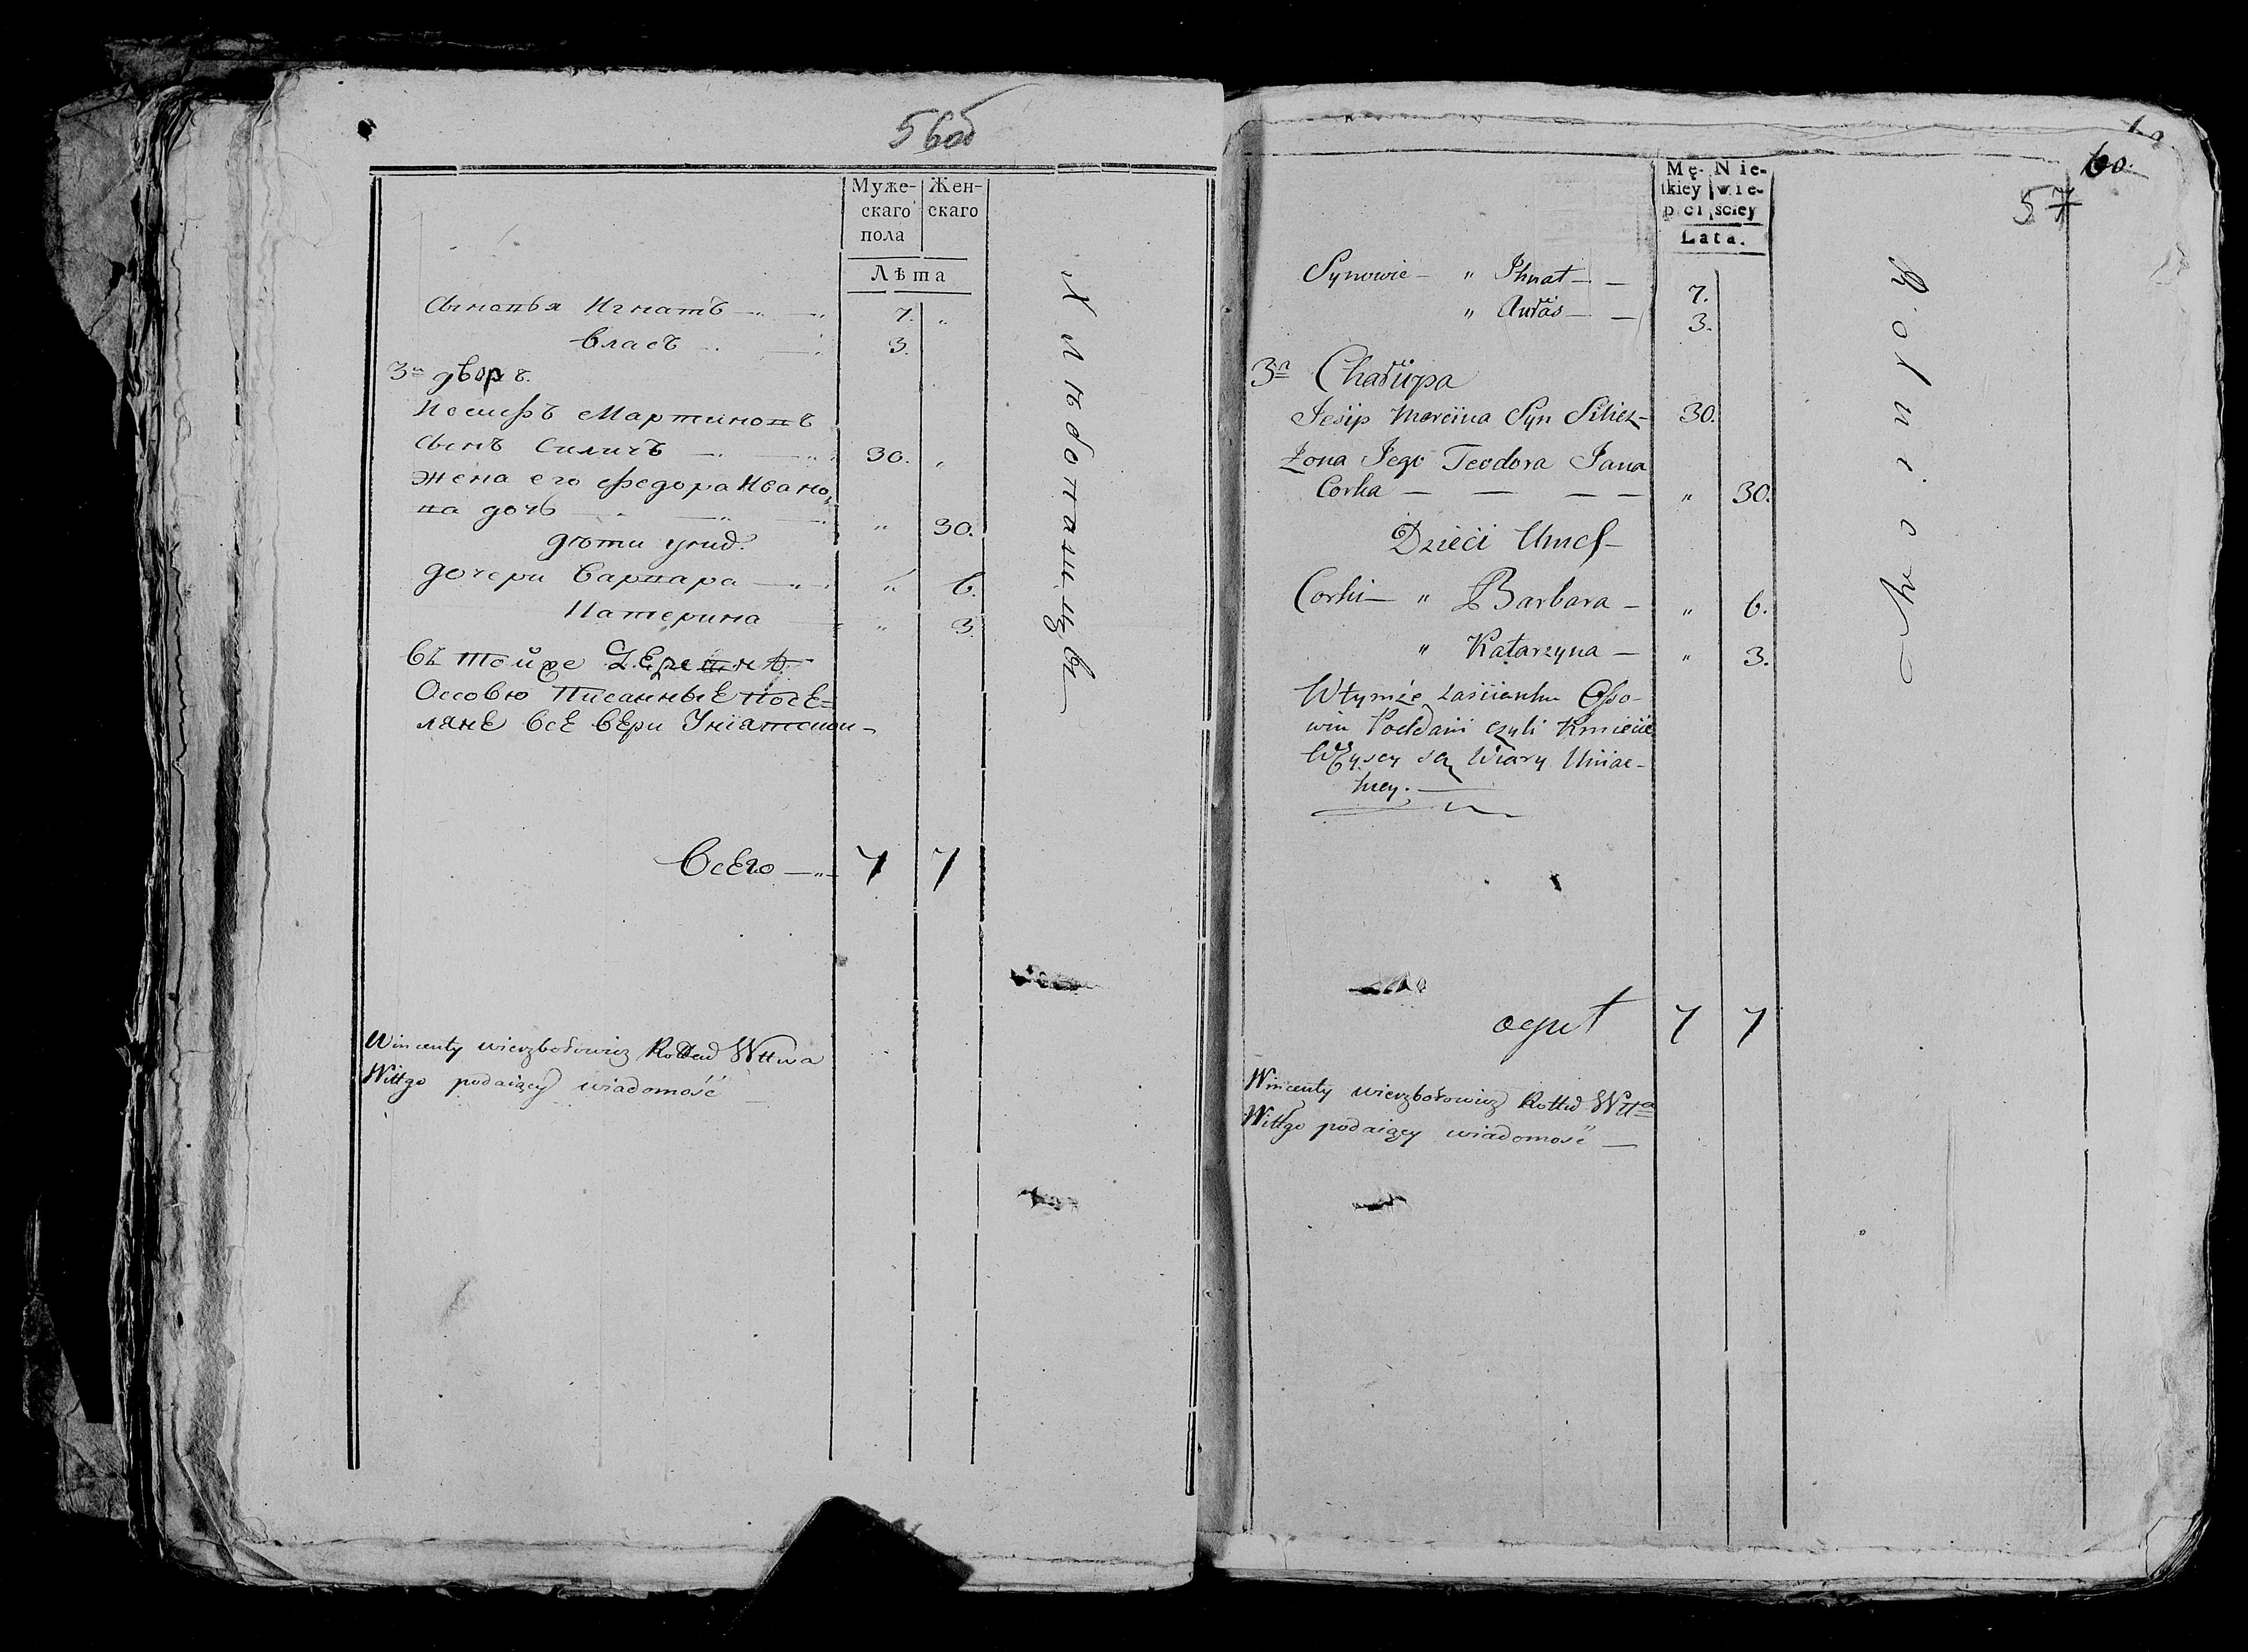 56об
Муже- Жен-
скаго скаго
пола
Лѣта
Сыновья Игнатъ 7. "
Власъ 3.
3й дворъ.
Иосифъ Мартиновъ
сынъ Силичъ 30. "
жена его Федора Ивано
ва дочь " 30.
дѣти ихъ
дочери Варвара " 6.
Катерина " 3
въ тойже Деревнѣ
Оссовю Писанные Посе=
ляне все вери Униятской
Хлѣбопашцы
Всего 7 7
Wincenty wierzbołowicz
Wittgo podaiący wiadomość
60.
57
Mę- Nie-
skiey wie-
płci ściey
Lata.
Synowie " Ihnat 7.
" Aułas 3.
3a Chałupa
Jesip Marcina Syn Silicz 30.
Żona Jego Teodora Jana
Corka " 30.
Dzieci
Corki " Barbara " 6.
" Katarzyna " 3.
Wtymże zaścianku Osso-
wiu Poddani czyli Kmiecie
Wszyscy są Wiary Uniac-
kiey.
ogut 7 7
Wincenty wierzbołowicz
Wittgo podaiący wiadomość